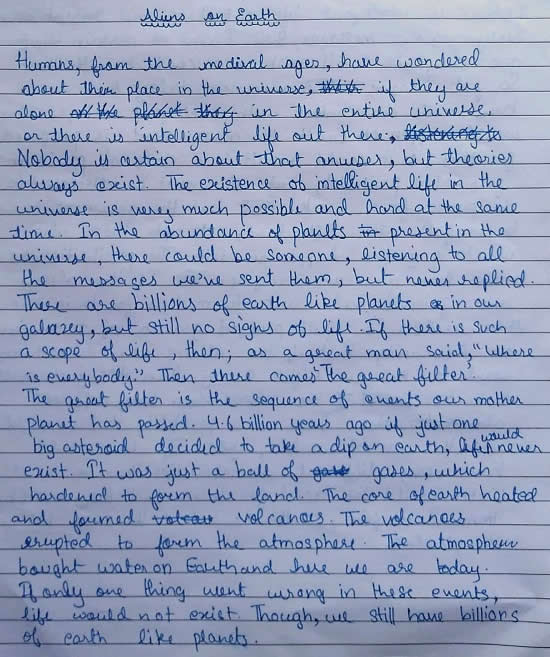 Aliens on Earth
Humans, from the medival ages, have wondered
about their place in the universe, if they are
alone off the planet they in the entire universe,
or there is intelligent life out there, listening to
Nobody is certain about that answer, but theories
always exist. The existence of intelligent life in the
universe is very much possible and hard at the same
time. In the abundance of planets in present in the
universe, there could be someone, listening to all
the messages we've sent them, but never replied.
There are billions of earth like planets in our
galaxey, but still no signs of life. If there is such
a scope of life, then; as a great man said, "Where
is everybody." Then there comes 'The great filter'.
The great filter is the sequence of events our mother
planet has passed. 4.6 billion years ago if just one
big asteroid decided to take a dip on earth, life would never
exist. It was just a ball of gases, which
hardened to form the land. The core of earth heated
and foumed volcan volcanoes. The volcanoes
erupted to form the atmosphere. The atmospheur
bought water on Earth and here we are today.
If only one thing went wrong in these events,
life would not exist. Though, we still have billions
of earth like planets.